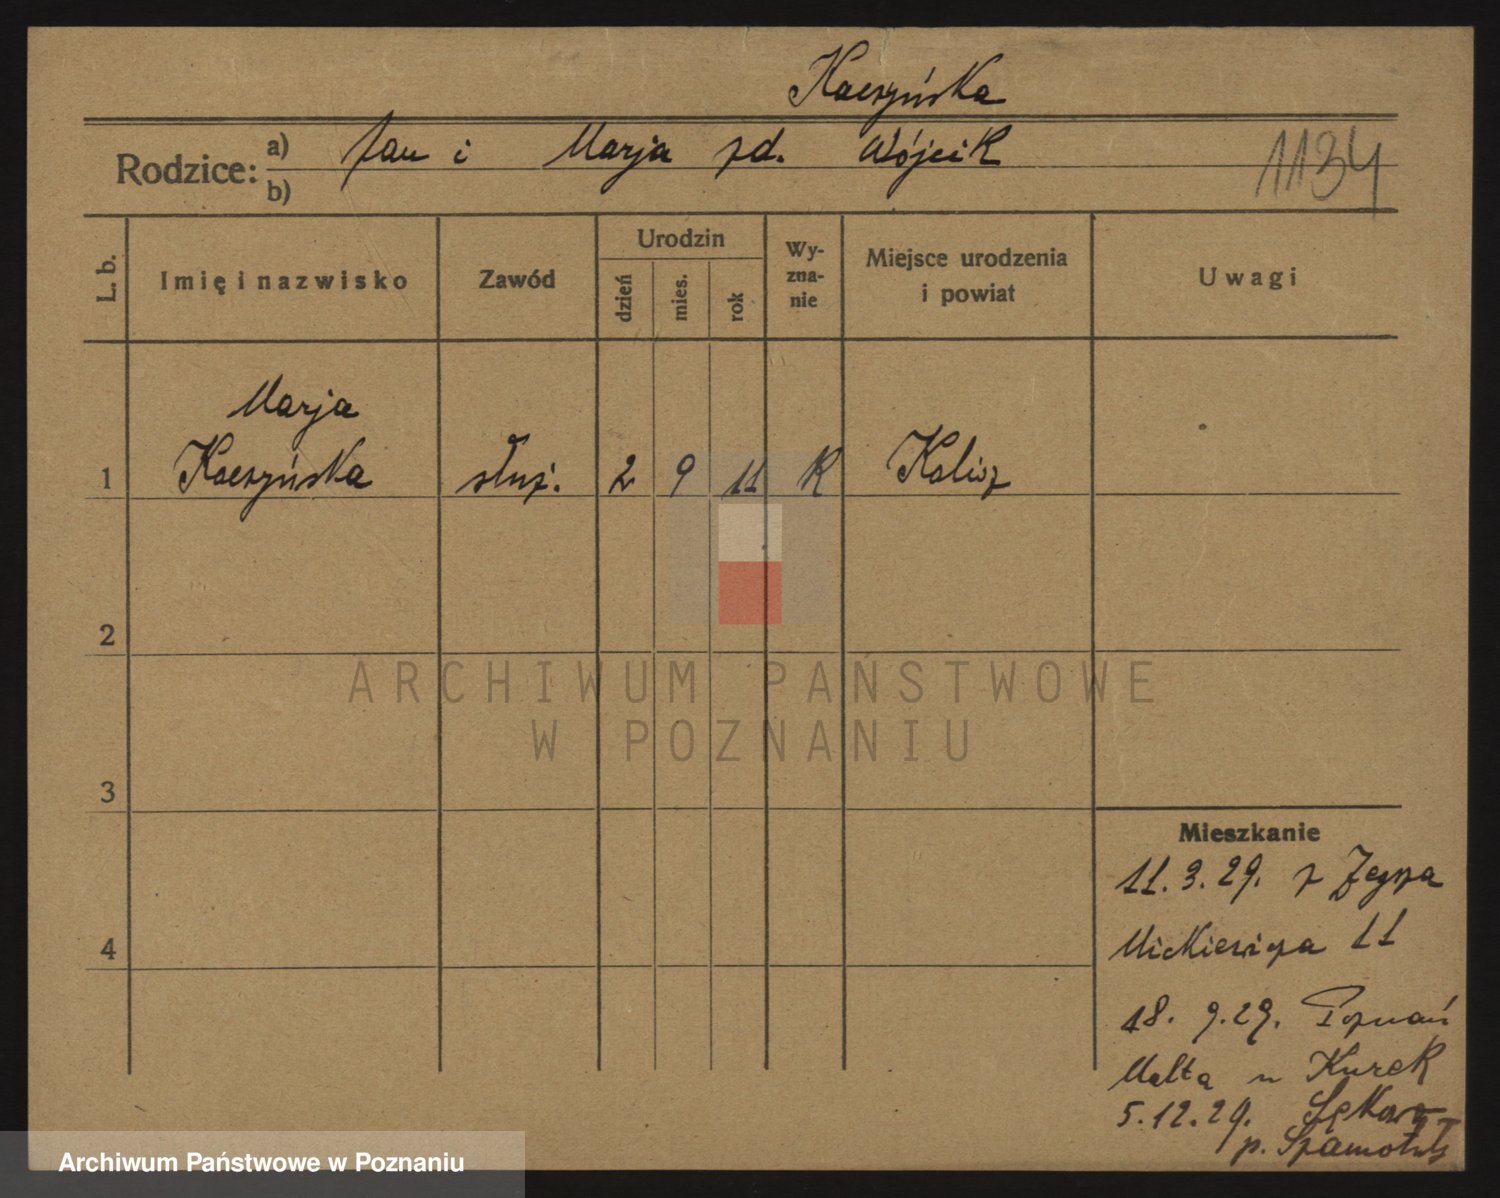 Kaczyńska
Rodzice: a) Jan i Marja zd. Wójcik
b)
1134
L. b. Imię i nazwisko Zawód Urodzin dzień mies. rok Wy-zna-nie Miejsce urodzenia i powiat Uwagi
Marja
1 Kaczyńska służ. 2 9 11 K Kalisz
2
ARCHIWUM PAŃSTWOWE
W POZNANIU
3
Mieszkanie
11.3.29. z
4
Mickiewicza 11
18. 9.29. Poznań
Malta u Kurek
5.12.29.
p. Szamotuły
Archiwum Państwowe w Poznaniu